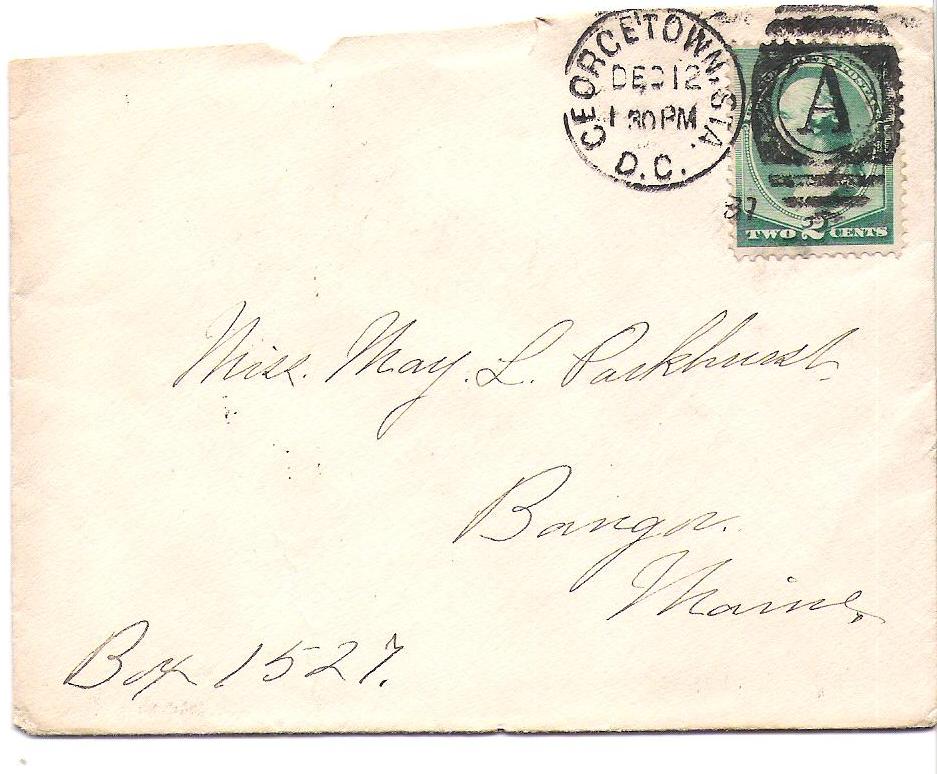 GEORGETOWN, STA.
DEC 12
1 30 PM
D.C.
87
A
TWO 2 CENTS
Miss. May. L. Parkhurst.
Bangor.
Maine.
Box 1527.